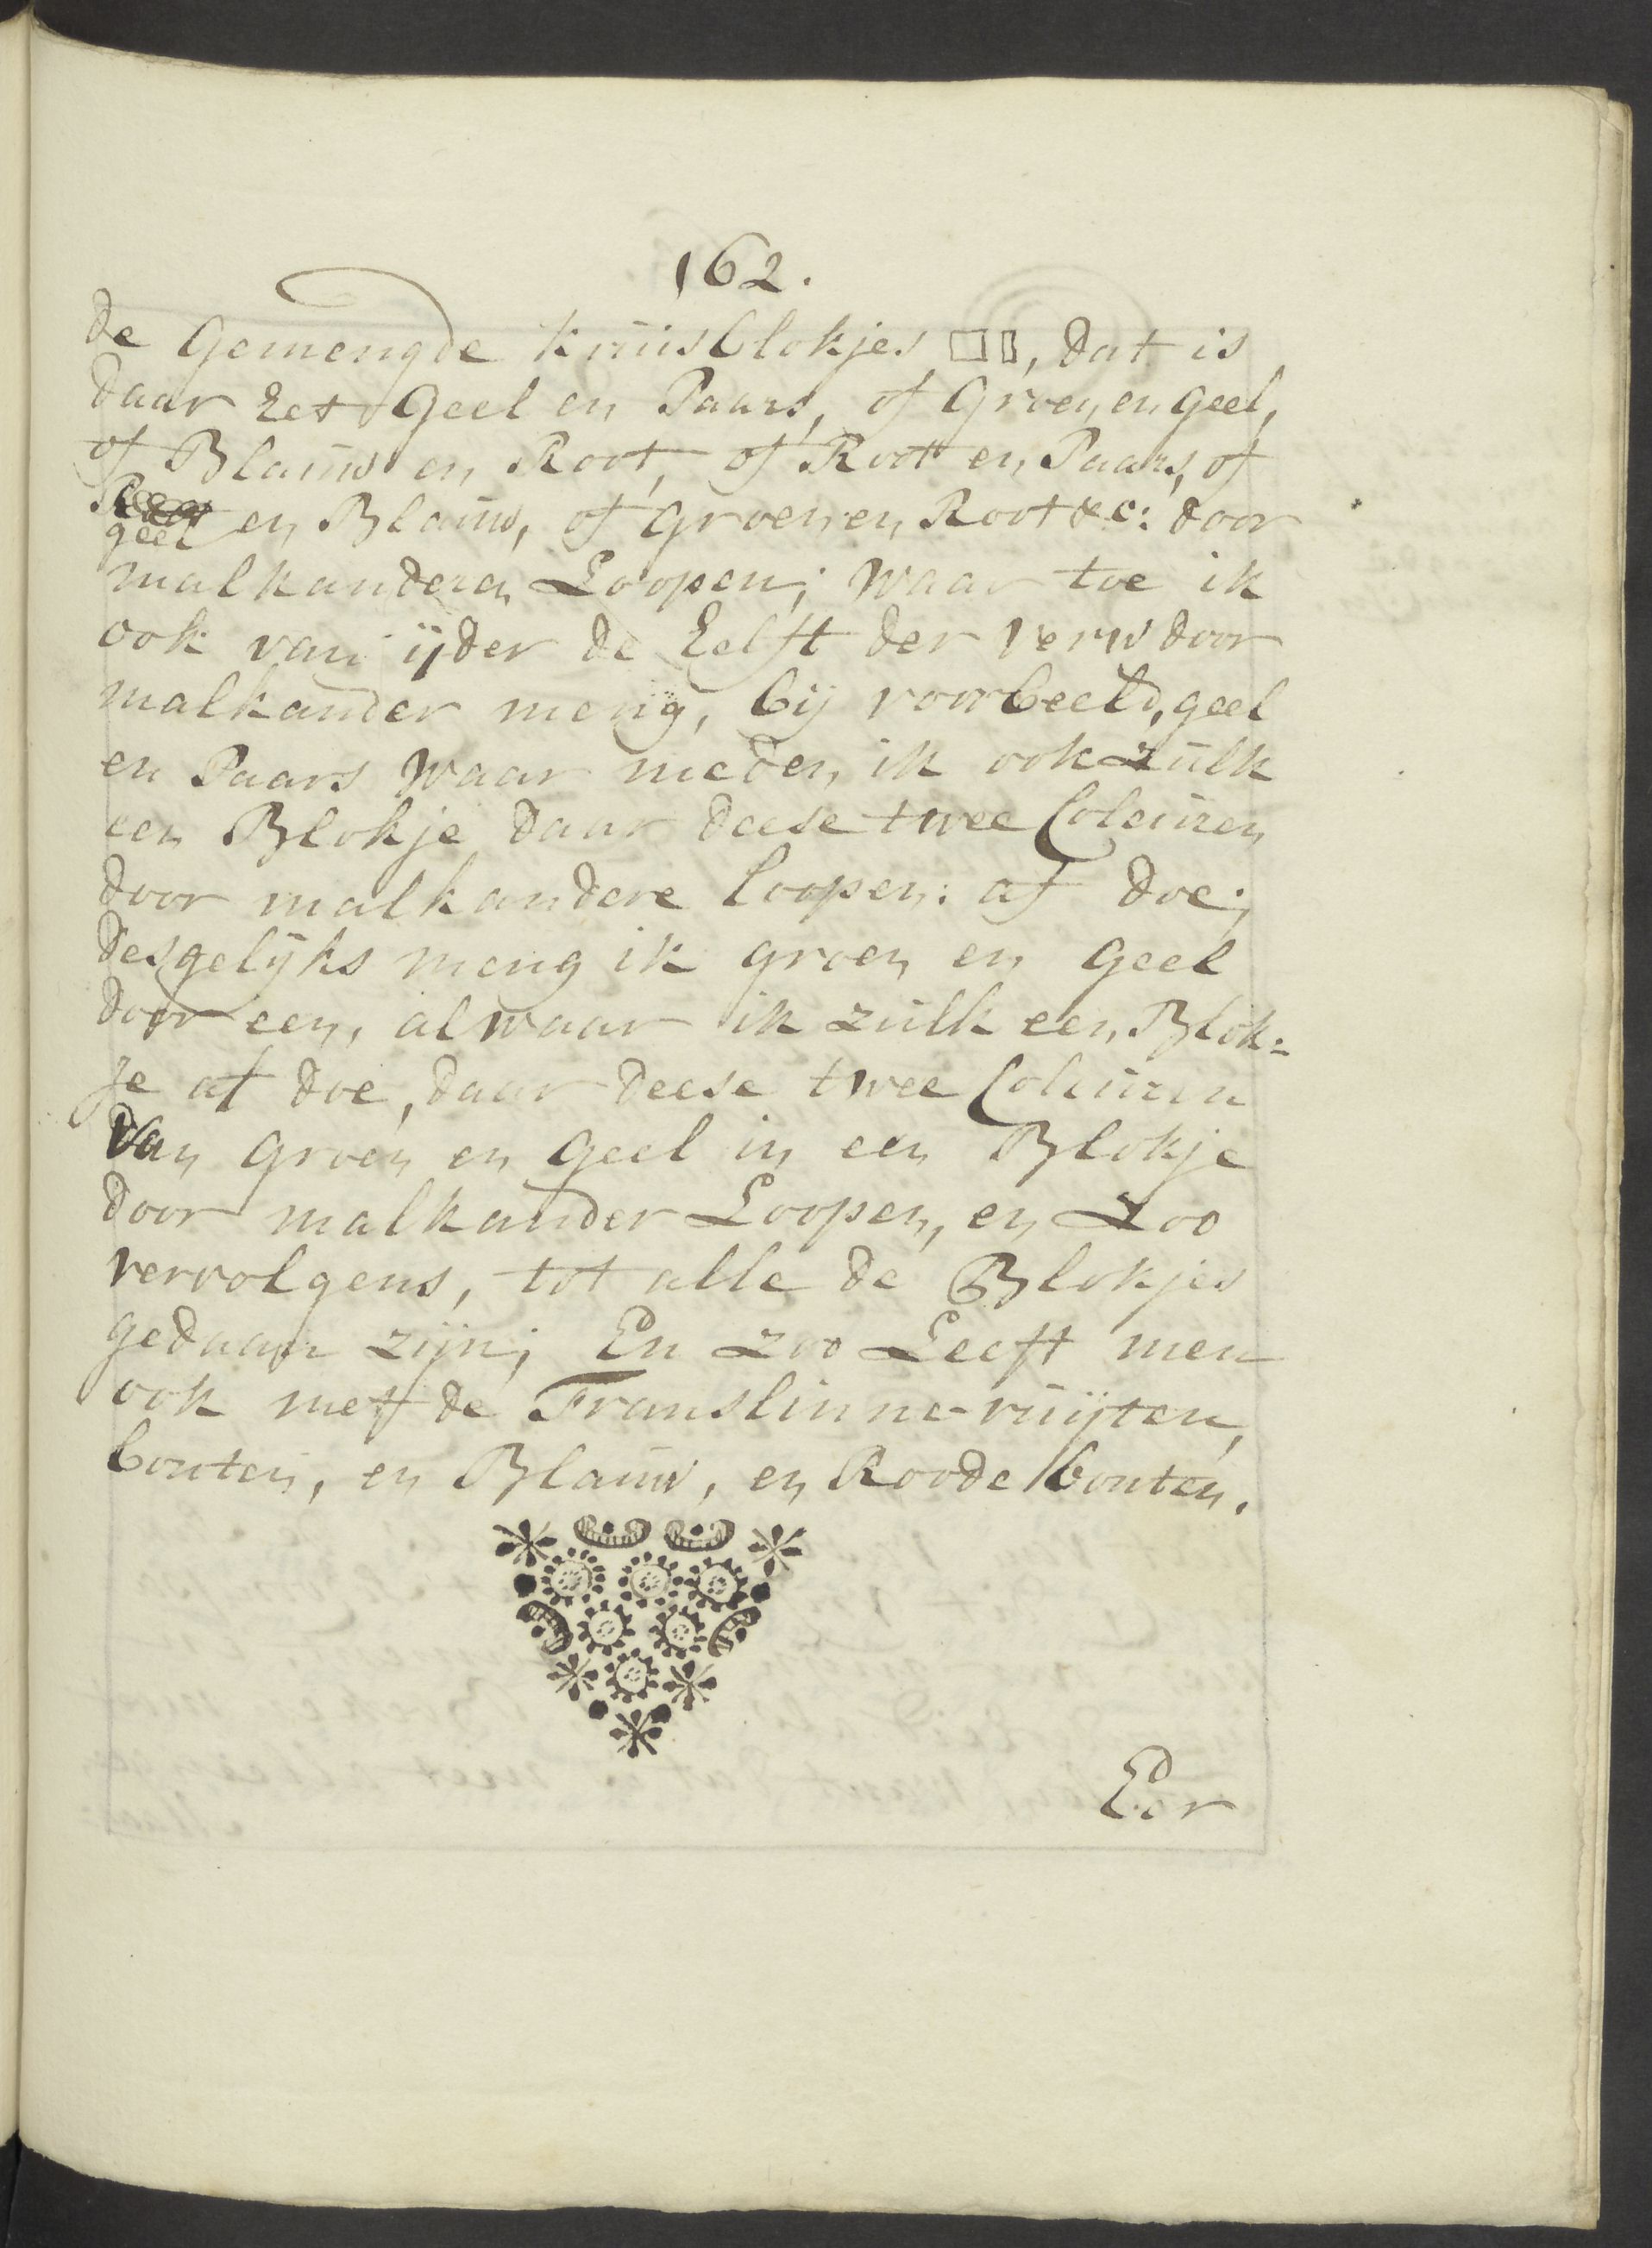 162.
de Gemengde kruisblokjes ▭▯, dat is
daar Het Geel en Paars, of Groen en geel,
of Blauw en Root, of Root en Paars, of
geel en Blauw, of groen en Root &c: door
malkanderen Loopen; waar toe ik
ook van ijder de Helft der verw door
malkander meng, bij voorbeeld, geel
en Paars waar meden ik ook zulk
een Blokje daar deese twee Coleuren
door malkandere loopen: af doe;
desgelijks meng ik groen en geel
door een, alwaar ik zulk een Blok:
je af doe, daar deese twee Coleuren
van groen en geel in een Blokje
door malkander Loopen, en zoo
vervolgens, tot alle de Blokjes
gedaan zijn; En zoo Leeft men
ook met de Franslinne-ruijten,
bonten, en Blauw, en Roode bonten.
Eer